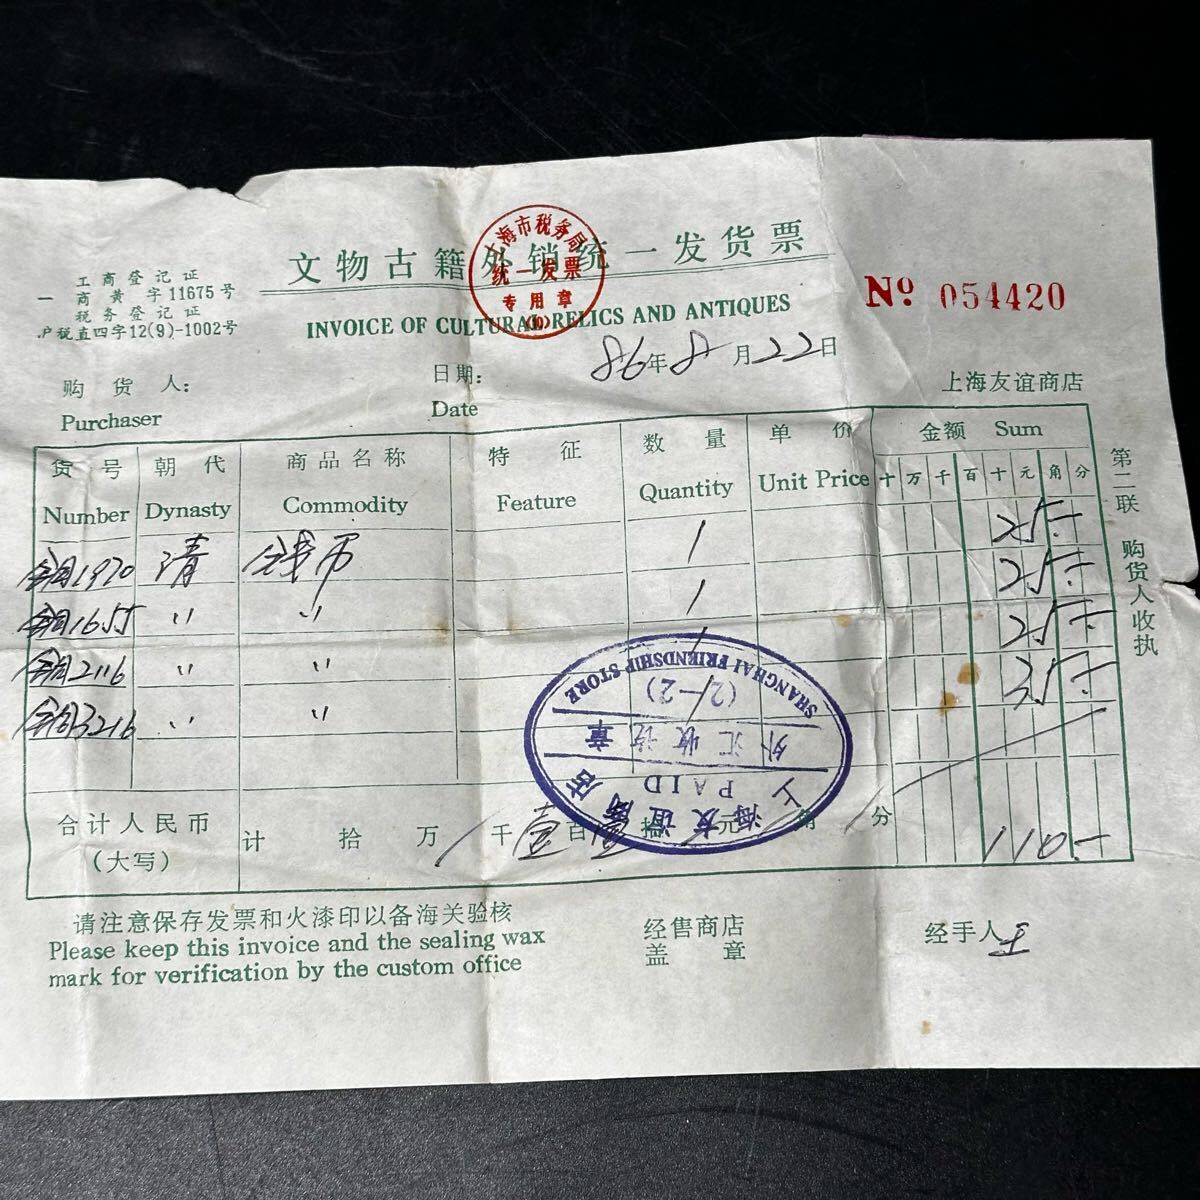 工商登记证
一商黄字11675号
税务登记证
沪税直四字12(9)-1002号
文物古籍外销统一发货票
INVOICE OF CULTURAL RELICS AND ANTIQUES
上海市税务局
统一发票
专用章
Nº 054420
购货人:
Purchaser
日期:
Date
86年8月22日
上海友谊商店
货号 朝代 商品名称 特征 数量 单价 金额 Sum
Number Dynasty Commodity Feature Quantity Unit Price 十 万 千 百 十 元 角 分
1970 清 钱币 1 25.-
1655 〃 〃 1 25.-
2116 〃 〃 1 25.-
3216 〃 〃 1 35.-
SHANGHAI FRIENDSHIP STORE
(2-2)
外汇收讫章
PAID
上海友谊商店
合计人民币
(大写)
计 拾 万 千壹百壹拾 元 角 分 110.-
请注意保存发票和火漆印以备海关验核
Please keep this invoice and the sealing wax
mark for verification by the custom office
经售商店
盖章
经手人
第二联 购货人收执